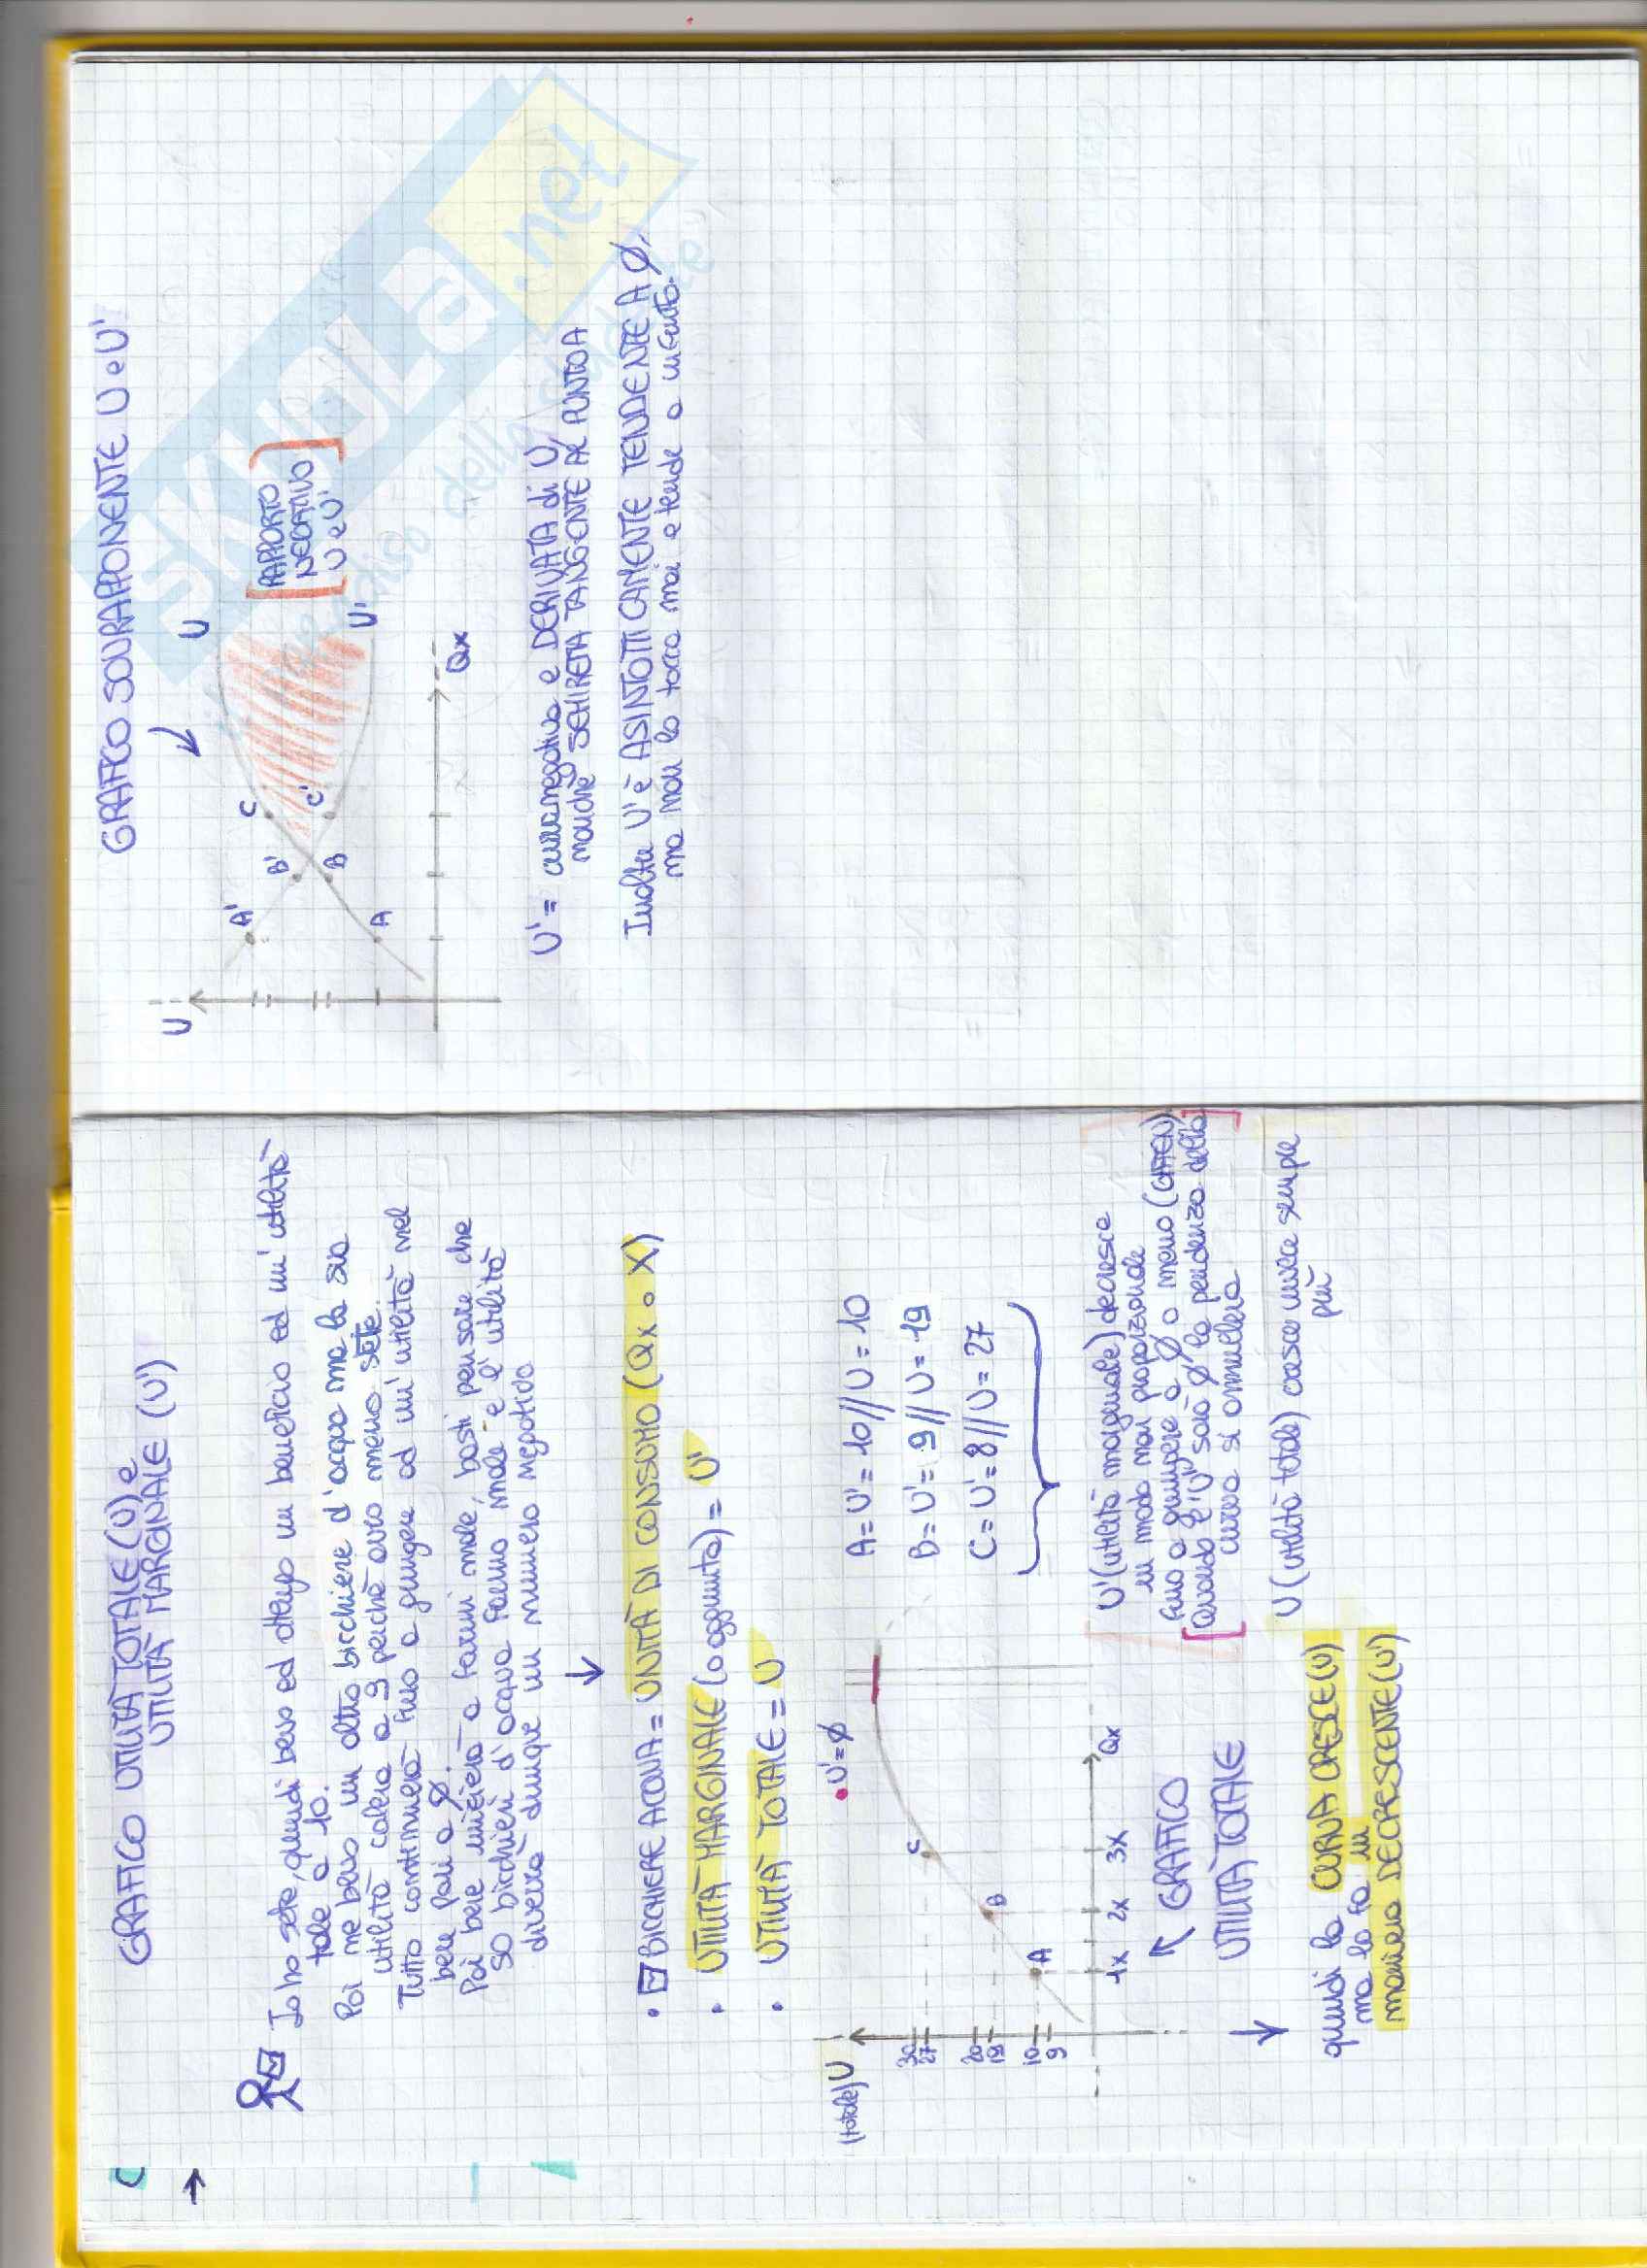 C
→
GRAFICO UTILITÀ TOTALE (U) e
UTILITÀ MARGINALE (U')
Io ho sete, quindi bevo ed ottengo un beneficio ed un'utilità
tale a 10.
Poi me bevo un altro bicchiere d'acqua ma la sua
utilità calerà a 9 perchè avrò meno sete.
Tutto continuerà fino a giungere ad un'utilità nel
bere pari a Ø.
Poi bere inizierà a farmi male, basti pensare che
50 bicchieri d'acqua fanno male e l'utilità
diverrà dunque un numero negativo
↓
• BICCHIERE ACQUA = UNITÀ DI CONSUMO (Qx o X)
• UTILITÀ MARGINALE (o aggiunta) = U'
• UTILITÀ TOTALE = U
(totale) U
30
27
20
19
10
9
A
B
C
• U'=Ø
1x 2x 3x Qx
↖ GRAFICO
UTILITÀ TOTALE
↓
quindi la CURVA CRESCE (U)
ma lo fa in
maniera DECRESCENTE (U')
A = U' = 10 // U = 10
B = U' = 9 // U = 19
C = U' = 8 // U = 27
U' (utilità marginale) decresce
in modo non proporzionale
fino a giungere a Ø o meno (GATEN)
[Quando l'U' sarà Ø la pendenza della
curva si annullerà]
U (utilità totale) cresce invece sempre
più
GRAFICO SOVRAPPONENTE U e U'
↙
U
A'
B'
C
U
A
B
C'
U'
Qx
[RAPPORTO
NEGATIVO
U e U']
U' = curva negativa e DERIVATA di U,
nonchè SEMIRETTA TANGENTE AL PUNTO A
Inoltre U' è ASINTOTICAMENTE TENDENTE A Ø,
ma non lo tocca mai e tende a infinito.
SKUOLa.net